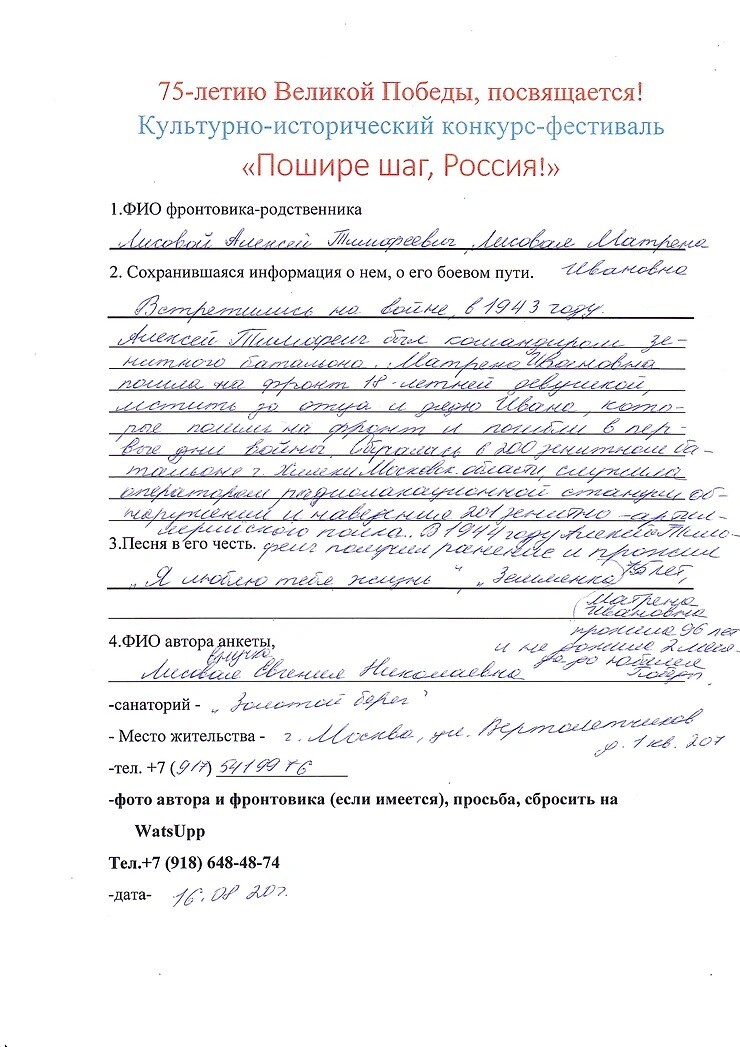 75-летию Великой Победы, посвящается!
Культурно-исторический конкурс-фестиваль
«Пошире шаг, Россия!»
1.ФИО фронтовика-родственника
Лисовой Алексей Тимофеевич, Лисовая Матрена
Ивановна
2. Сохранившаяся информация о нем, о его боевом пути.
Встретились на войне, в 1943 году.
Алексей Тимофеич был командиром зе-
нитного батальона. Матрена Ивановна
пошла на фронт 18-летней девушкой,
мстить за отца и дядю Ивана, кото-
рые пошли на фронт и погибли в пер-
вые дни войны. Обучалась в 200 зенитном ба-
тальоне г. Химки Московск. области, служила
оператором радиолакационной станции об-
наружения и наведения 201 зенитно-артил-
лерийского полка. В 1944 году Алексей Тимо-
3.Песня в его честь. феич получил ранение и прожил
„Я люблю тебя жизнь", „Землянка" 75 лет,
(Матрена
Ивановна
прожила 96 лет
4.ФИО автора анкеты,
и не дожила 2 меся-
внучка
ца до юбилея
Лисовая Евгения Николаевна
Победы)
-санаторий - „Золотой берег"
- Место жительства - г. Москва, ул. Вертолетчиков
д. 1 кв. 207
-тел. +7 (917) 5419976
-фото автора и фронтовика (если имеется), просьба, сбросить на
WatsUpp
Тел.+7 (918) 648-48-74
-дата- 16.08 20г.